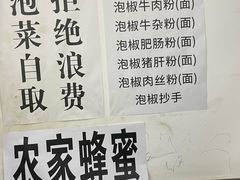 泡菜自取
拒绝浪费
泡椒牛肉粉(面)
泡椒牛杂粉(面)
泡椒肥肠粉(面)
泡椒猪肝粉(面)
泡椒肉丝粉(面)
泡椒抄手
农家蜂蜜